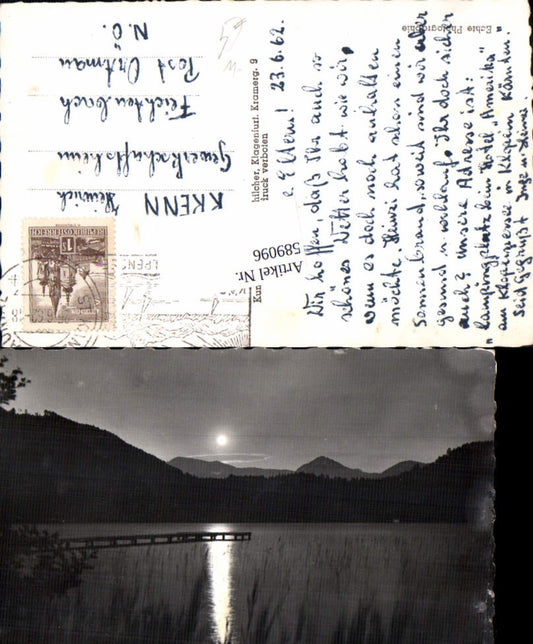 Echte Photographie
23.6.62.
L. Eltern!
Wir hoffen, daß Ihr auch so
schönes Wetter habt wie wir,
wenn es doch noch anhalten
möchte. Heinzi hat schon einen
Sonnenbrand, soweit sind wir aber
gesund u. wohlauf, Ihr doch sicher
auch? Unsere Adresse ist:
"Campingplatz beim Hotel "Amerika"
am Klopeinersee in Klopein Kärnten.
Seid gegrüßt Inge u. Heinz.
hilcher, Klagenfurt, Kramerg. 9
fruck verboten
Kun
Artikel Nr.
589096
59
KKENN
Heinrich
Gewerkschaftsheim
Feichtenbach
Post Ortman
N.Ö.
REPUBLIK ÖSTERREICH